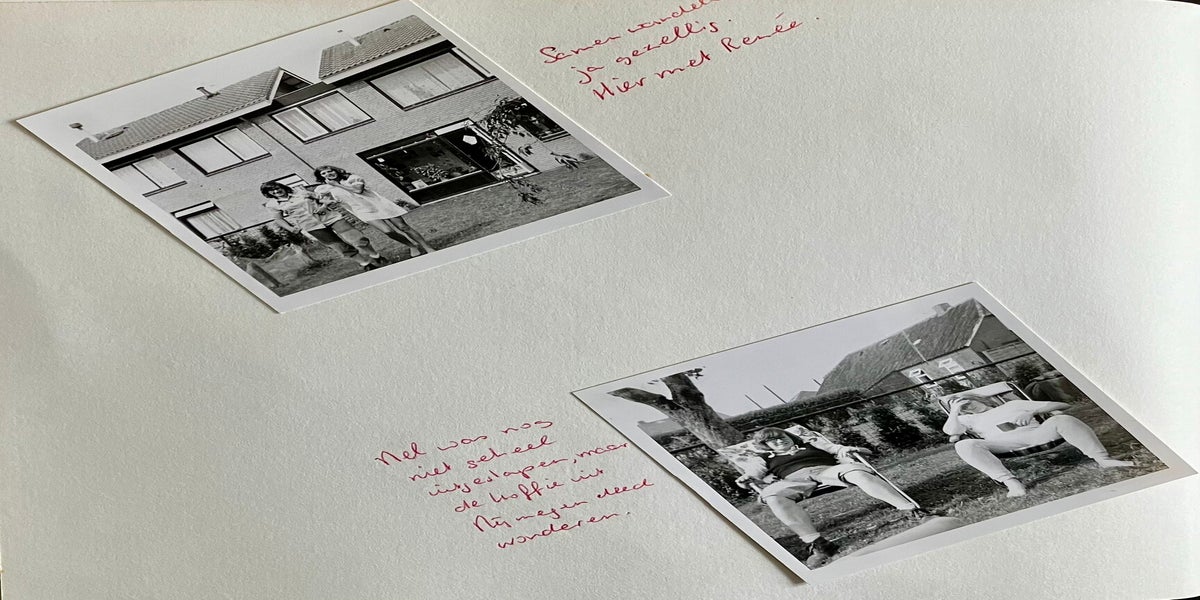 Samen wandelen
ja gezellig.
Hier met Renée.
Nel was nog
niet geheel
uitgeslapen, maar
de koffie uit
Nijmegen deed
wonderen.